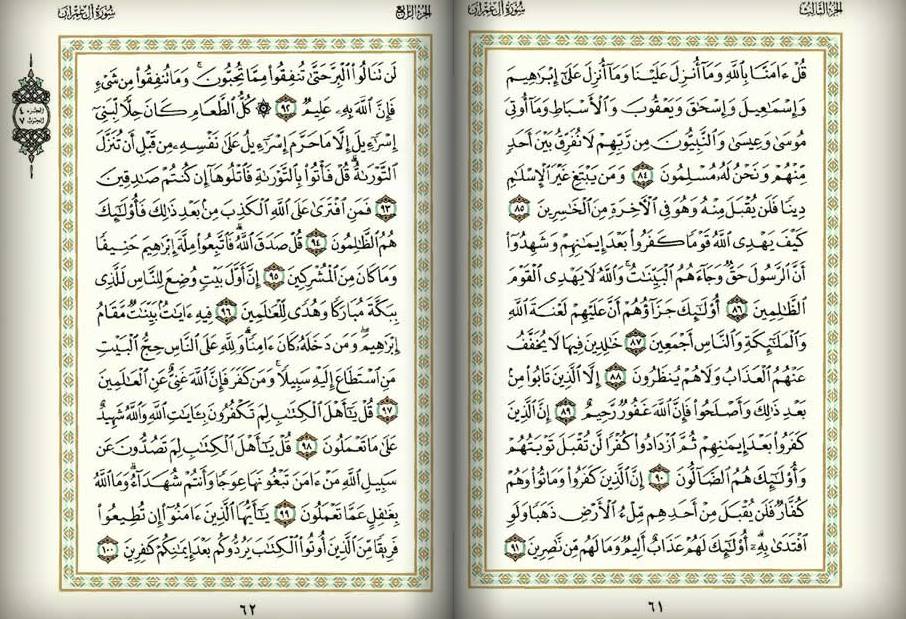 الجزء الثالث
سورة آل عمران
قُلْ ءَامَنَّا بِاللَّهِ وَمَا أُنزِلَ عَلَيْنَا وَمَا أُنزِلَ عَلَىٰ إِبْرَاهِيمَ
وَإِسْمَاعِيلَ وَإِسْحَاقَ وَيَعْقُوبَ وَالْأَسْبَاطِ وَمَا أُوتِيَ
مُوسَىٰ وَعِيسَىٰ وَالنَّبِيُّونَ مِن رَّبِّهِمْ لَا نُفَرِّقُ بَيْنَ أَحَدٍ
مِّنْهُمْ وَنَحْنُ لَهُ مُسْلِمُونَ ٨٤ وَمَن يَبْتَغِ غَيْرَ الْإِسْلَامِ
دِينًا فَلَن يُقْبَلَ مِنْهُ وَهُوَ فِي الْآخِرَةِ مِنَ الْخَاسِرِينَ ٨٥
كَيْفَ يَهْدِي اللَّهُ قَوْمًا كَفَرُوا بَعْدَ إِيمَانِهِمْ وَشَهِدُوا
أَنَّ الرَّسُولَ حَقٌّ وَجَاءَهُمُ الْبَيِّنَاتُ ۚ وَاللَّهُ لَا يَهْدِي الْقَوْمَ
الظَّالِمِينَ ٨٦ أُولَٰئِكَ جَزَاؤُهُمْ أَنَّ عَلَيْهِمْ لَعْنَةَ اللَّهِ
وَالْمَلَائِكَةِ وَالنَّاسِ أَجْمَعِينَ ٨٧ خَالِدِينَ فِيهَا لَا يُخَفَّفُ
عَنْهُمُ الْعَذَابُ وَلَا هُمْ يُنظَرُونَ ٨٨ إِلَّا الَّذِينَ تَابُوا مِن
بَعْدِ ذَٰلِكَ وَأَصْلَحُوا فَإِنَّ اللَّهَ غَفُورٌ رَّحِيمٌ ٨٩ إِنَّ الَّذِينَ
كَفَرُوا بَعْدَ إِيمَانِهِمْ ثُمَّ ازْدَادُوا كُفْرًا لَّن تُقْبَلَ تَوْبَتُهُمْ
وَأُولَٰئِكَ هُمُ الضَّالُّونَ ٩٠ إِنَّ الَّذِينَ كَفَرُوا وَمَاتُوا وَهُمْ
كُفَّارٌ فَلَن يُقْبَلَ مِنْ أَحَدِهِم مِّلْءُ الْأَرْضِ ذَهَبًا وَلَوِ
افْتَدَىٰ بِهِ ۗ أُولَٰئِكَ لَهُمْ عَذَابٌ أَلِيمٌ وَمَا لَهُم مِّن نَّاصِرِينَ ٩١
٦١
الجزء الرابع
سورة آل عمران
لَن تَنَالُوا الْبِرَّ حَتَّىٰ تُنفِقُوا مِمَّا تُحِبُّونَ ۚ وَمَا تُنفِقُوا مِن شَيْءٍ
فَإِنَّ اللَّهَ بِهِ عَلِيمٌ ٩٢ ۞ كُلُّ الطَّعَامِ كَانَ حِلًّا لِّبَنِي
إِسْرَائِيلَ إِلَّا مَا حَرَّمَ إِسْرَائِيلُ عَلَىٰ نَفْسِهِ مِن قَبْلِ أَن تُنَزَّلَ
التَّوْرَاةُ ۗ قُلْ فَأْتُوا بِالتَّوْرَاةِ فَاتْلُوهَا إِن كُنتُمْ صَادِقِينَ
٩٣ فَمَنِ افْتَرَىٰ عَلَى اللَّهِ الْكَذِبَ مِن بَعْدِ ذَٰلِكَ فَأُولَٰئِكَ
هُمُ الظَّالِمُونَ ٩٤ قُلْ صَدَقَ اللَّهُ ۗ فَاتَّبِعُوا مِلَّةَ إِبْرَاهِيمَ حَنِيفًا
وَمَا كَانَ مِنَ الْمُشْرِكِينَ ٩٥ إِنَّ أَوَّلَ بَيْتٍ وُضِعَ لِلنَّاسِ لَلَّذِي
بِبَكَّةَ مُبَارَكًا وَهُدًى لِّلْعَالَمِينَ ٩٦ فِيهِ ءَايَاتٌ بَيِّنَاتٌ مَّقَامُ
إِبْرَاهِيمَ ۖ وَمَن دَخَلَهُ كَانَ ءَامِنًا ۗ وَلِلَّهِ عَلَى النَّاسِ حِجُّ الْبَيْتِ
مَنِ اسْتَطَاعَ إِلَيْهِ سَبِيلًا ۚ وَمَن كَفَرَ فَإِنَّ اللَّهَ غَنِيٌّ عَنِ الْعَالَمِينَ
٩٧ قُلْ يَا أَهْلَ الْكِتَابِ لِمَ تَكْفُرُونَ بِآيَاتِ اللَّهِ وَاللَّهُ شَهِيدٌ
عَلَىٰ مَا تَعْمَلُونَ ٩٨ قُلْ يَا أَهْلَ الْكِتَابِ لِمَ تَصُدُّونَ عَن
سَبِيلِ اللَّهِ مَنْ ءَامَنَ تَبْغُونَهَا عِوَجًا وَأَنتُمْ شُهَدَاءُ ۗ وَمَا اللَّهُ
بِغَافِلٍ عَمَّا تَعْمَلُونَ ٩٩ يَا أَيُّهَا الَّذِينَ ءَامَنُوا إِن تُطِيعُوا
فَرِيقًا مِّنَ الَّذِينَ أُوتُوا الْكِتَابَ يَرُدُّوكُم بَعْدَ إِيمَانِكُمْ كَافِرِينَ ١٠٠
الجزء ٤
الحزب ٧
٦٢